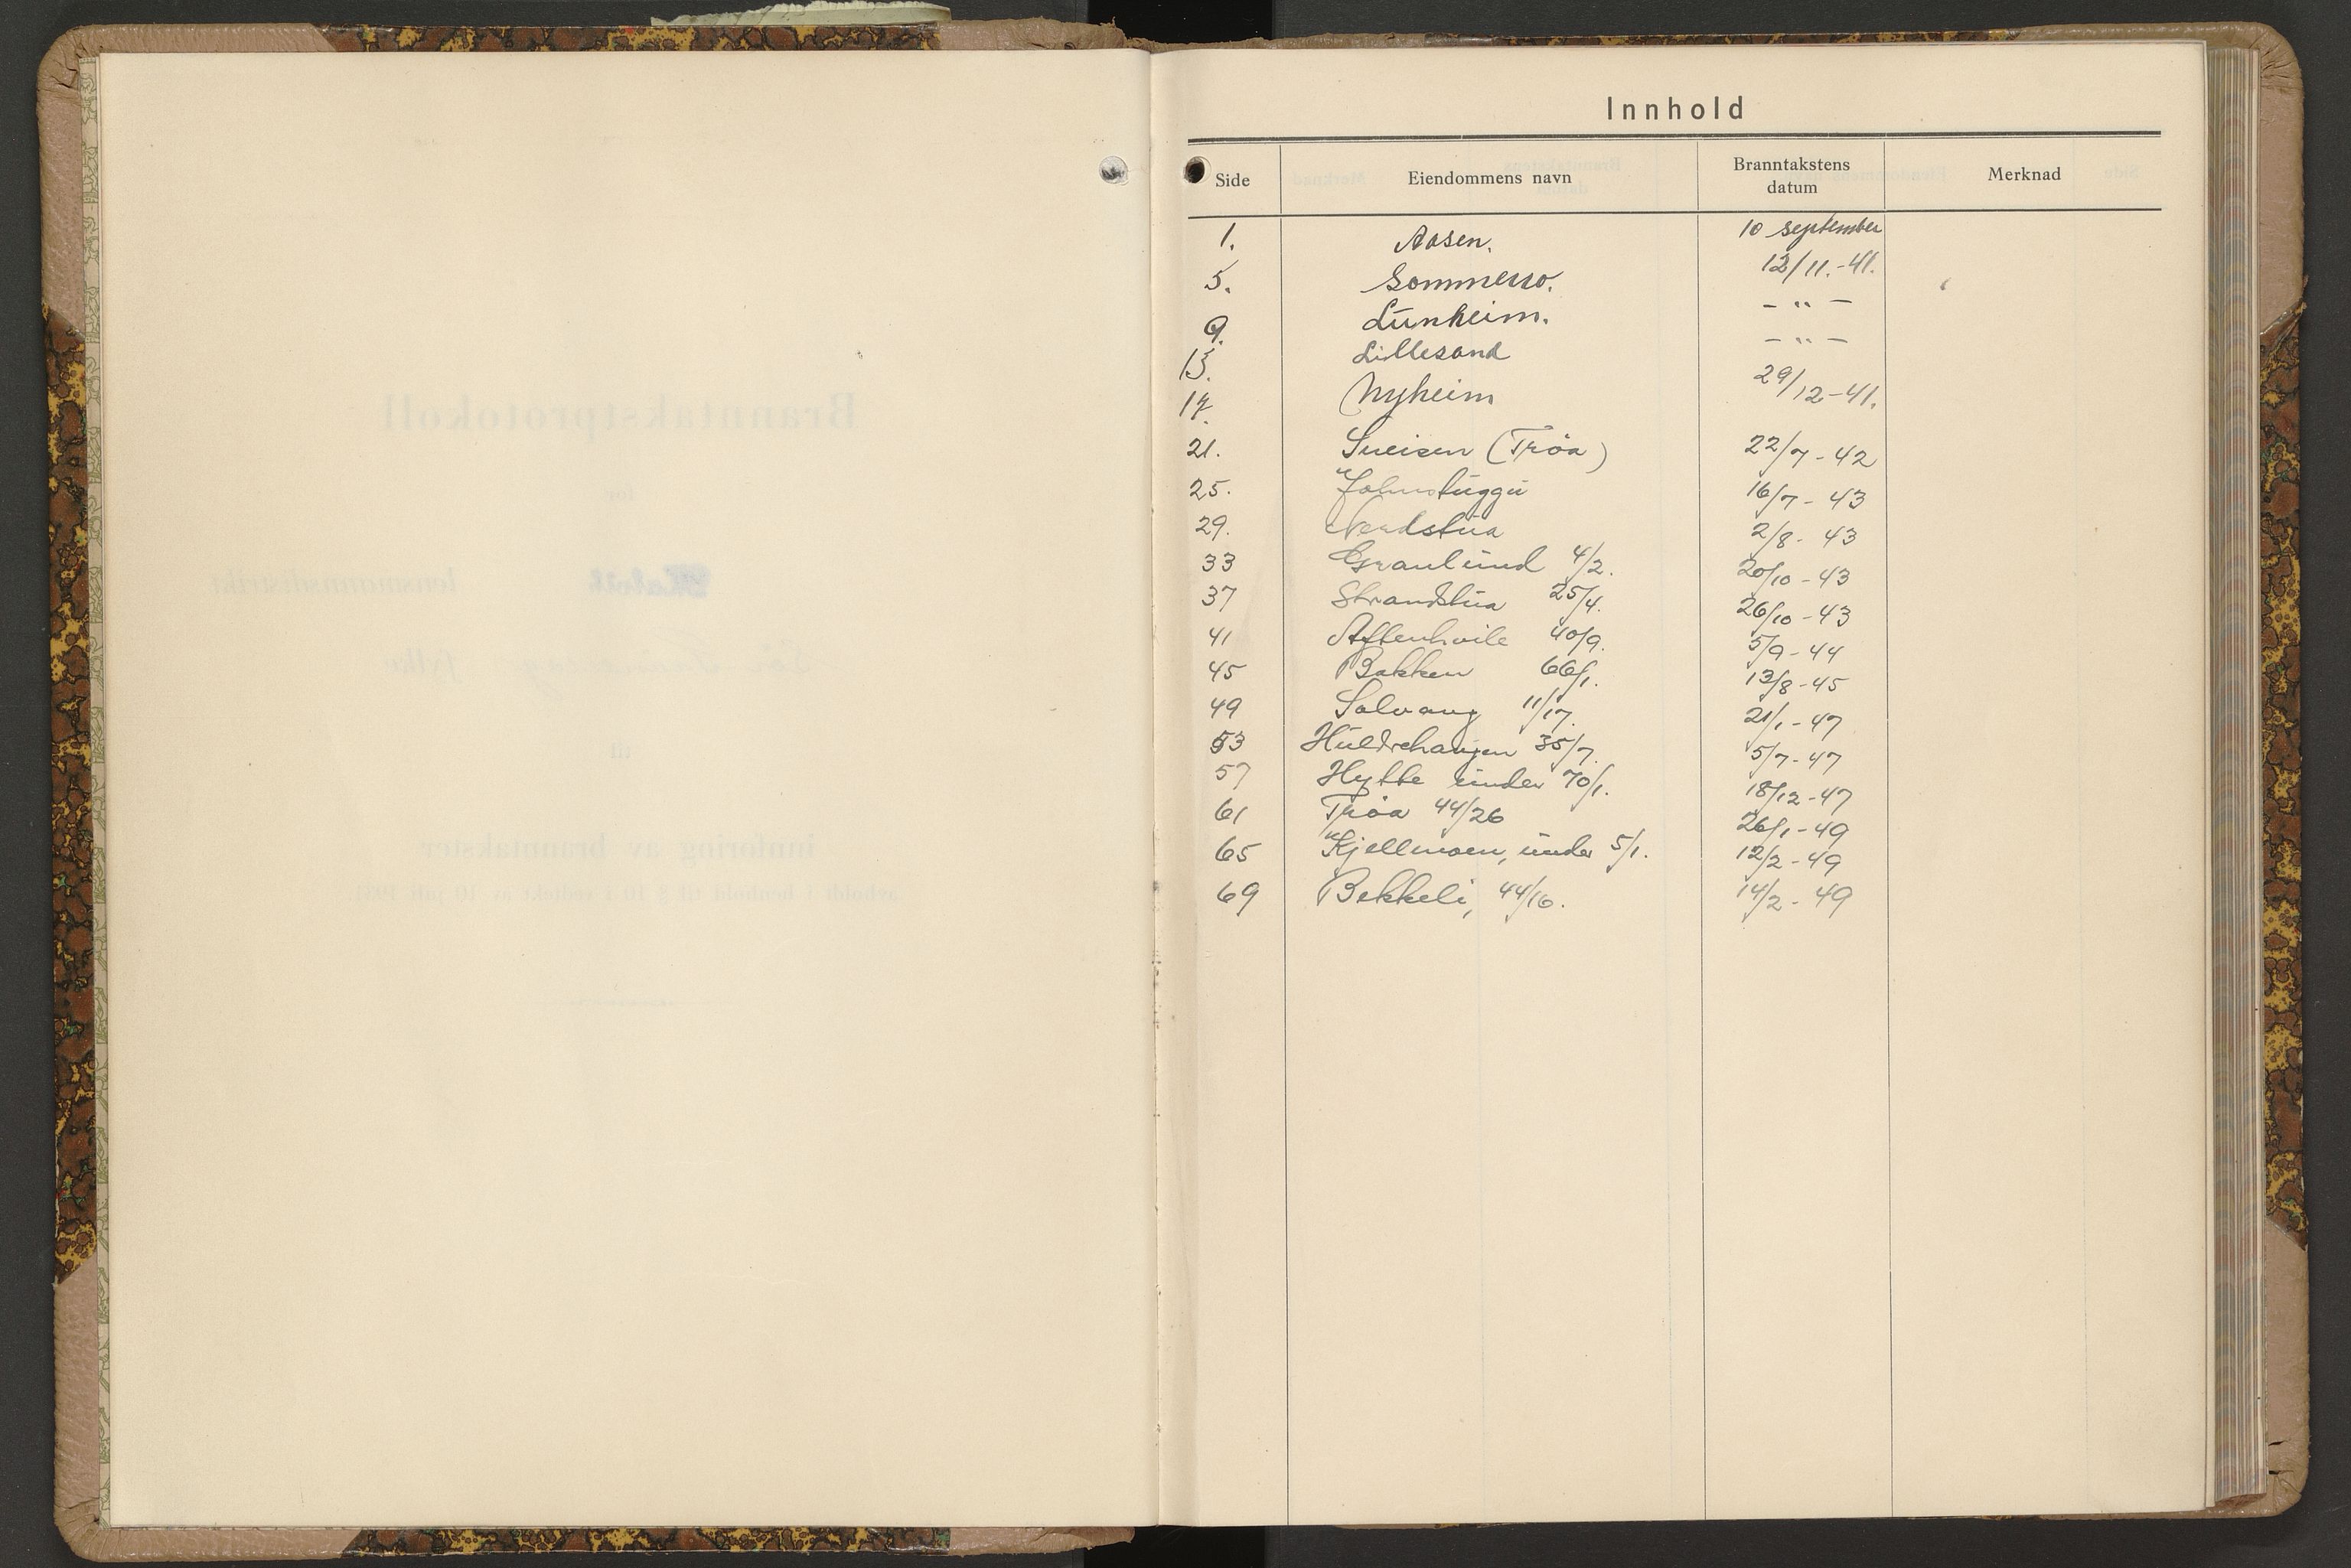 Innhold
Side Eiendommens navn Branntakstens datum Merknad
1. Aasen. 10 september
5. Sommerro. 12/11.-41.
9. Lunheim. - " -
13. Lillesand - " -
17. Nyheim 29/12-41.
21. Sneisen (Trøa) 22/7-42
25. Johnstuggu 16/7-43
29. Nerdstua 2/8-43
33 Granlund 4/2. 20/10-43
37 Strandstua 25/4. 26/10-43
41 Aftenhvile 40/9. 5/9-44
45 Bakken 66/1. 13/8-45
49 Solvang 11/17. 21/1-47
53 Huldrehaugen 35/7. 5/7-47
57 Hytte under 70/1. 18/12-47
61 Trøa 44/26 26/1-49
65 Kjellmoen, under 5/1. 12/2-49
69 Bekkeli, 44/16. 14/2-49